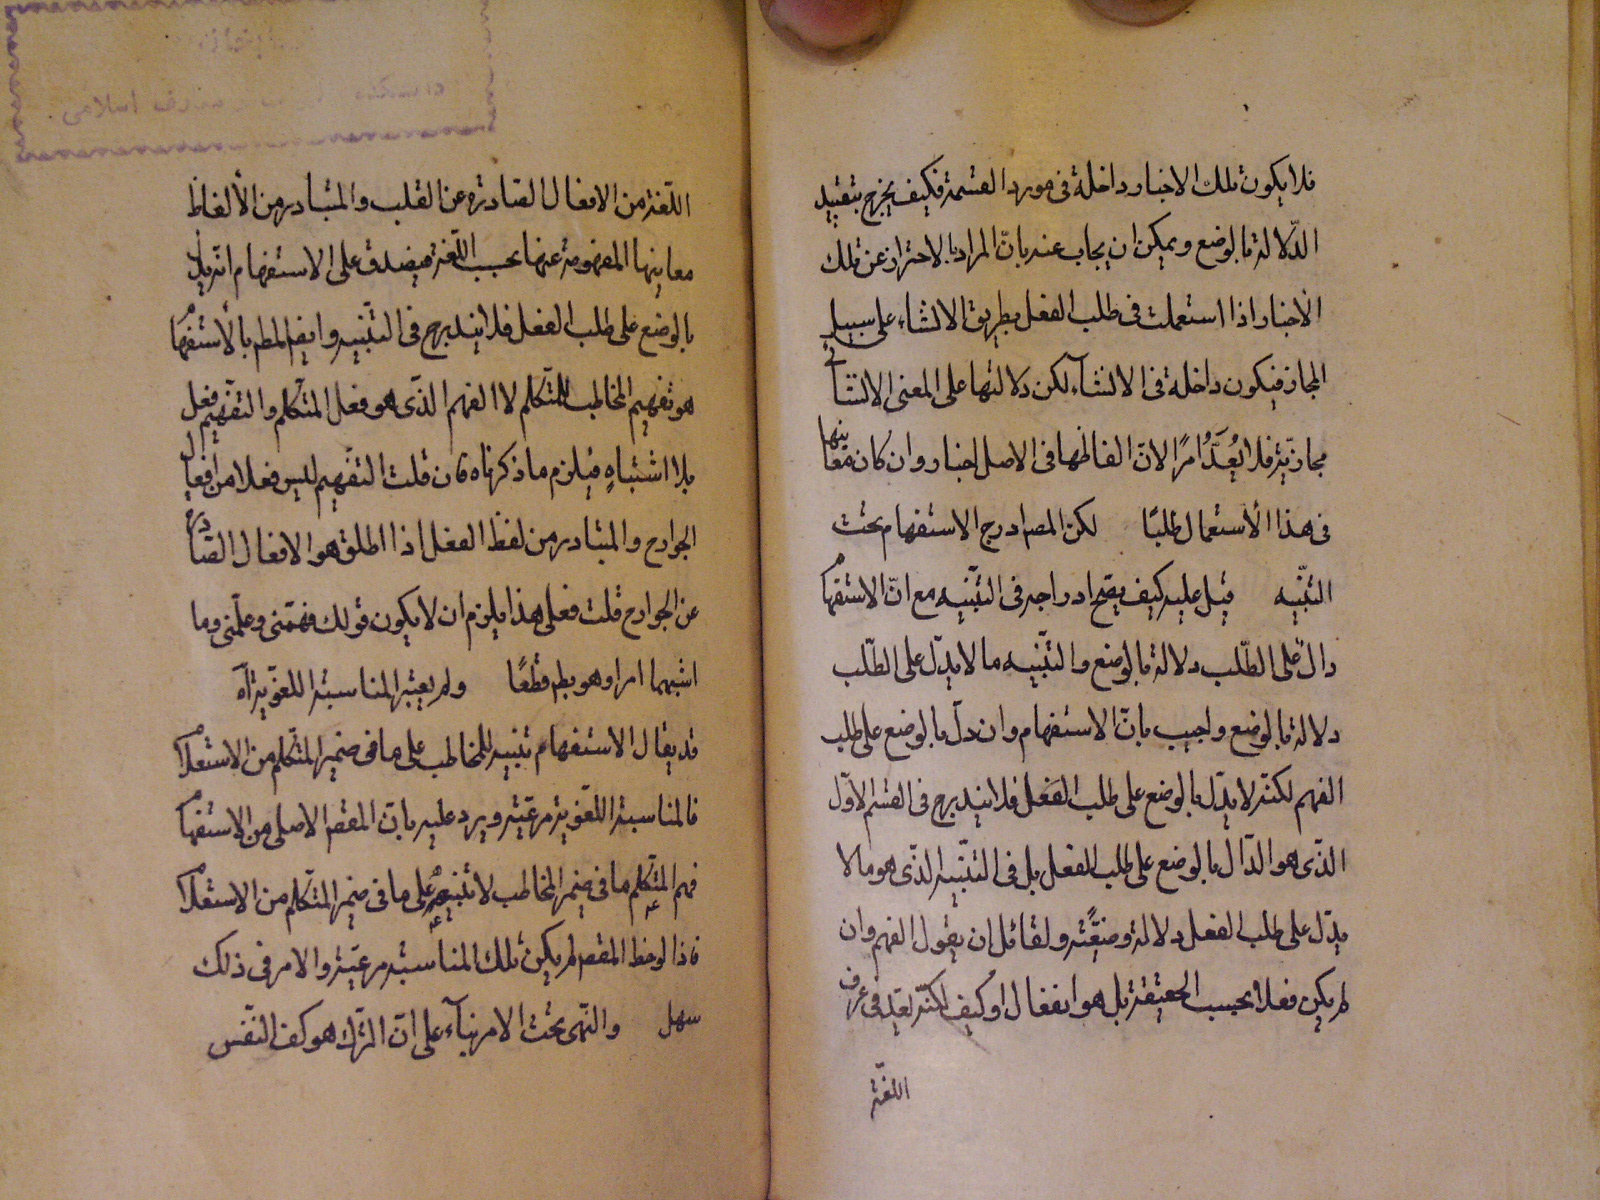 فلا يكون تلك الاخبار داخلة فى مورد القسمة فكيف يخرج بتقييد
الدّلالة بالوضع ويمكن ان يجاب عنه بانّ المراد بالاحتراز عن تلك
الاخبار اذا استعملت فى طلب الفعل بطريق الانشاء على سبيل
المجاز فيكون داخلة فى الانشآء لكن دلالتها على المعنى الانشائى
مجازيّة فلا يُعَدُّ امرًا لانّ الفاظها فى الاصل اخبار وان كان معانيها
فى هذا الاستعمال طلبًا لكن المصـ ادرج الاستفهام تحت
التنّبيه قيل عليه كيف يصح ادراجه فى التنّبيه مع انّ الاستفهام
دالّ على الطّلب دلالة بالوضع والتنّبيه ما لا يدّل على الطّلب
دلالة بالوضع واجيب بانّ الاستفهام وان دلّ بالوضع على طلب
الفهم لكنّه لا يدّل بالوضع على طلب الفعل فلا يندرج فى القسم الاوّل
الذّى هو الدّال بالوضع على طلب الفعل بل فى التنّبيه الذّى هو ما لا
يدّل على طلب الفعل دلالة وضعيّة ولقائل ان يقول الفهم وان
لم يكن فعلا بحسب الحقيقة بل هو انفعال او كيف لكنّه يعدّ فى عرف
اللغّة
اللّغة من الافعال الصّادرة عن القلب والمتبادر من الألفاظ
معانيها المفهومة عنها بحسب اللّغة فيصدق على الاستفهام انّه يدلّ
بالوضع على طلب الفعل فلا يندرج فى التنّبيه وايضـ المطـ بالأستفهام
هو تفهيم المخاطب للمتكلم لا الفهم الذّى هو فعل المتكلّم والتفهيم فعل
بلا اشتباهٍ فيلزم ما ذكرناه فان قلت التفّهيم ليس فعلا من افعال
الجوارح والمتبادر من لفظ الفعل اذا اطلق هو الافعال الصّادرة
عن الجوارح قلت فعلى هذا يلزم ان لا يكون قولك فهّمنى وعلّمنى وما
اشبههما امرا وهو بطـ قطعًا ولم يعتبر المناسبة اللغوّية آه
قد يقال الاستفهام تنبيه للمخاطب على ما فى ضمير المتكلّم من الاستعلام
فالمناسبة اللغّوية مرعيّة ويرد عليه بانّ المقصـ الاصلى من الاستفهام
فهم المتكلّم ما فى ضمير المخاطب لا تنبيهه على ما فى ضمير المتكلّم من الاستعلام
فاذا لوحظ المقصـ لم يكن تلك المناسبة مرعيّة والامر فى ذلك
سهل والنّهى تحت الامر بنآء على انّ الترّك هو كف النّفس
معارف اسلامى